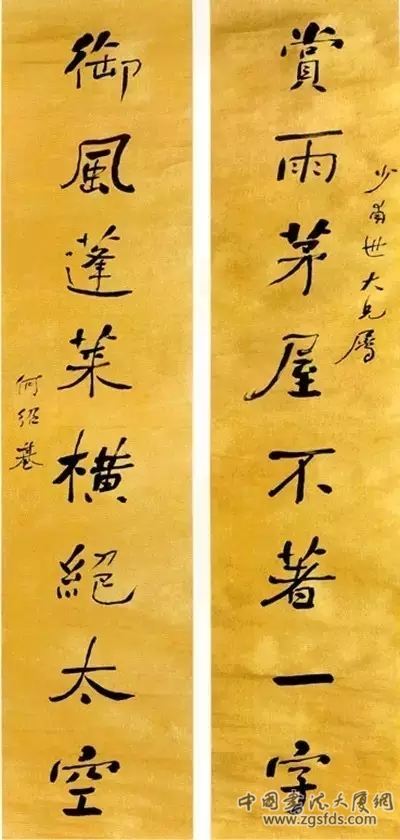 賞雨茅屋不著一字
少甫世大兄屬
御風蓬萊橫絕太空
何紹基
中國書法大廈網
www.zgsfds.com